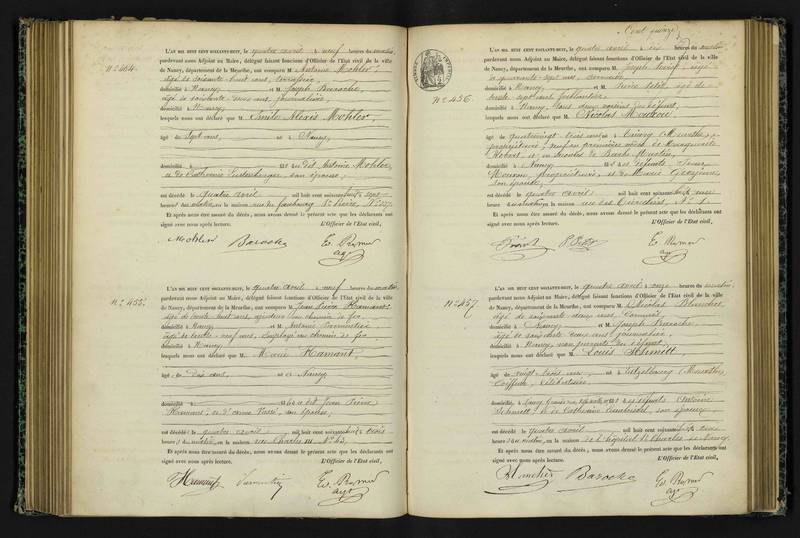 N° 454.
L'AN MIL HUIT CENT SOIXANTE-HUIT, le quatre avril à neuf heures du matin,
pardevant nous Adjoint au Maire, délégué faisant fonctions d'Officier de l'Etat civil de la ville
de Nancy, département de la Meurthe, ont comparu M. Antoine Mohler,
âgé de soixante huit ans, terrassier,
domicilié à Nancy et M. Joseph Baroche,
âgé de soixante onze ans, journalier,
domicilié à Nancy
lesquels nous ont déclaré que M. Emile Alexis Mohler,
âgé de sept ans, né à Nancy,
domicilié à fils des dit Antoine Mohler,
et de Catherine son épouse,
est décédé le quatre avril mil huit cent soixante-huit à sept
heures du matin, en la maison rue du faubourg St Pierre, N° 37.
Et après nous être assuré du décès, nous avons dressé le présent acte que les déclarants ont
signé avec nous après lecture. L'Officier de l'Etat civil,
Mohler Baroche
N° 455.
L'AN MIL HUIT CENT SOIXANTE-HUIT, le quatre avril à neuf heures du matin,
pardevant nous Adjoint au Maire, délégué faisant fonctions d'Officier de l'Etat civil de la ville
de Nancy, département de la Meurthe, ont comparu M. Jean Pierre Hamant,
âgé de trente huit ans, au chemin de fer,
domicilié à Nancy et M. Antoine
âgé de trente-neuf ans, employé au chemin de fer,
domicilié à Nancy
lesquels nous ont déclaré que M. Marie Hamant,
âgé de dix ans, né à Nancy
domicilié à fille dit Jean Pierre
Hamant, et d'Anne son épouse,
est décédé le quatre avril mil huit cent soixante-huit à trois
heures du matin, en la maison rue Charles III, N° 43.
Et après nous être assuré du décès, nous avons dressé le présent acte que les déclarants ont
signé avec nous après lecture. L'Officier de l'Etat civil,
Hamant
Cent quinze
N° 456.
L'AN MIL HUIT CENT SOIXANTE-HUIT, le quatre avril à dix heures du matin
pardevant nous Adjoint au Maire, délégué faisant fonctions d'Officier de l'Etat civil de la ville
de Nancy, département de la Meurthe, ont comparu M. Joseph âgé
de quarante-sept ans,
domicilié à Nancy et M. Pierre Petit, âgé de
trente-sept ans, ferblantier,
domicilié à Nancy, tous deux voisins du défunt,
lesquels nous ont déclaré que M. Nicolas
âgé de quatre-vingt trois ans, né à (Meurthe),
propriétaire, veuf en premières noces de Marguerite
et en secondes de
domicilié à Nancy fils des défunts
propriétaire, et de Marie
son épouse,
est décédé le quatre avril mil huit cent soixante-huit à une
heure du matin, en la maison rue des N° 1.
Et après nous être assuré du décès, nous avons dressé le présent acte que les déclarants ont
signé avec nous après lecture. L'Officier de l'Etat civil,
P. Petit
N° 457.
L'AN MIL HUIT CENT SOIXANTE-HUIT, le quatre avril à onze heures du matin,
pardevant nous Adjoint au Maire, délégué faisant fonctions d'Officier de l'Etat civil de la ville
de Nancy, département de la Meurthe, ont comparu M. Nicolas Blanchet,
âgé de soixante deux ans, commis,
domicilié à Nancy et M. Joseph Baroche,
âgé de soixante onze ans, journalier,
domicilié à Nancy, non parents du défunt,
lesquels nous ont déclaré que M. Louis Schmitt,
âgé de vingt trois ans, né à Lutzelbourg (Meurthe),
coiffeur, célibataire,
domicilié à Nancy, fils des défunts Antoine
Schmitt, et de Catherine son épouse,
est décédé le quatre avril mil huit cent soixante-huit à trois
heures du matin, en la maison de l'hôpital St Charles de Nancy.
Et après nous être assuré du décès, nous avons dressé le présent acte que les déclarants ont
signé avec nous après lecture. L'Officier de l'Etat civil,
Blanchet Baroche